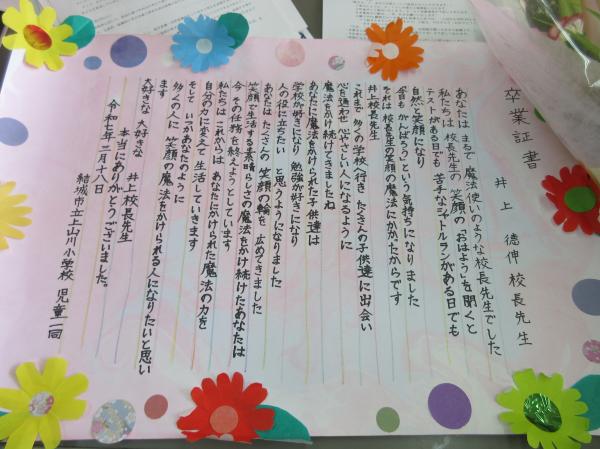 卒業証書
井上 徳伸 校長先生
あなたはまるで 魔法使いのような校長先生でした
私たちは 校長先生の 笑顔の「おはよう」を聞くと
テストがある日でも 苦手なシャトルランがある日でも
自然と笑顔になり
「今日も がんばろう」という気持ちになりました
それは 校長先生の笑顔の魔法にかかったからです
井上校長先生
これまで 多くの学校へ行き たくさんの子供達に出会い
心を通わせ 心やさしい人になるように
魔法をかけ続けてきましたね
あなたに魔法をかけられた子供達は
学校が好きになり 勉強が好きになり
人の役に立ちたい と思うようになりました
あなたは たくさんの 笑顔の輪を 広めてきました
笑顔で生活する素晴らしさの魔法をかけ続けたあなたは
今 その任務を終えようとしています
私たちは これからは あなたにかけられた魔法の力を
自分の力に変えて 生活していきます
そして いつか あなたのように
多くの人に 笑顔の魔法をかけられる人になりたいと思い
ます
大好きな 大好きな 井上校長先生
本当にありがとうございました。
令和七年 二月十八日
結城市立上山川小学校 児童一同